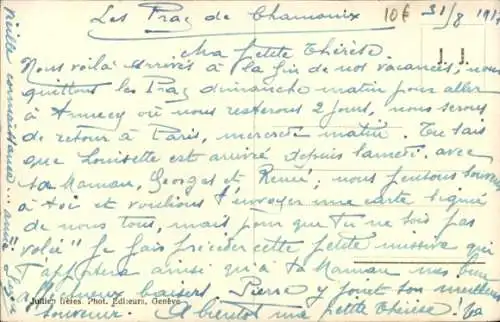 Les Praz de Chamonix 10€ 31/8 191
J. J.
Ma petite Thérèse
Nous voilà arrivés à la fin de nos vacances, nous
quittons les Praz dimanche matin pour aller
à Annecy où nous resterons 2 jours, nous serons
de retour à Paris, mercredi matin. Tu sais
que Louisette est arrivé depuis samedi avec
sa Maman, Georges et Renée; nous pensons souvent
à toi et voulions t'envoyer une carte signé
de nous tous, mais pour que tu ne sois pas
"volée" je fais précéder cette petite missive qui
t'apportera ainsi qu'à ta Maman nos bien
affectueux baisers Pierre y joint son meilleur
souvenir. A bientôt ma petite Thérèse! Ta
vieille connaissance... amie
Jullien frères, Phot. Editeurs, Genève